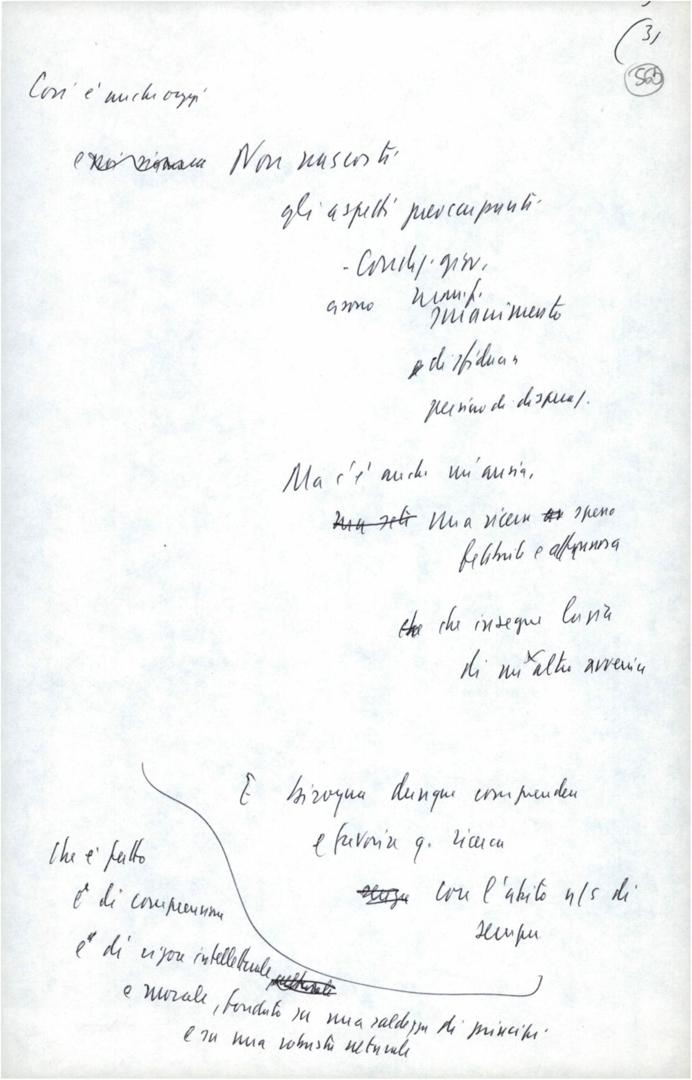 (3)
560
Così è anche oggi
Non nascosti
gli aspetti preoccupanti
- Condiz. giov.
ci sono manif.
smarrimento
e di sfiducia
persino di disperaz.
Ma c'è anche un'ansia,
una seti una ricerca spesso
febbrile e affannosa
che che insegue la via
di un altro avvenire
E bisogna dunque comprendere
e favorire q. ricerca
senza con l'abito n/s di
sempre
che è fatto
e di comprensione
e di rigore intellettuale culturale
e morale, fondato su una saldezza di principi
e su una robusta naturale